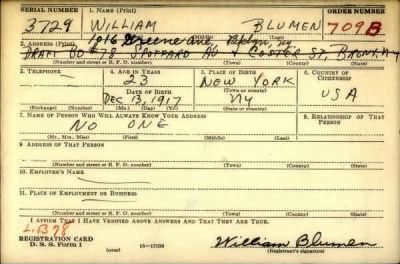 SERIAL NUMBER 1. NAME (Print) ORDER NUMBER
3729 WILLIAM BLUMEN 709B
(First) (Middle) (Last)
1016 Greene Ave, Bklyn, NY
2. ADDRESS (Print)
DRAFT BD #78 SPOFFORD AV & COSTER ST, BRONX, NY
(Number and street or R. F. D. number) (Town) (County) (State)
3. TELEPHONE 4. AGE IN YEARS 5. PLACE OF BIRTH 6. COUNTRY OF CITIZENSHIP
23 NEW YORK
DATE OF BIRTH (Town or county)
DEC 13, 1917 NY USA
(Exchange) (Number) (Mo.) (Day) (Yr.) (State or country)
7. NAME OF PERSON WHO WILL ALWAYS KNOW YOUR ADDRESS 8. RELATIONSHIP OF THAT PERSON
NO ONE
(Mr., Mrs., Miss) (First) (Middle) (Last)
9. ADDRESS OF THAT PERSON
(Number and street or R. F. D. number) (Town) (County) (State)
10. EMPLOYER'S NAME
11. PLACE OF EMPLOYMENT OR BUSINESS
(Number and street or R. F. D. number) (Town) (County) (State)
I AFFIRM THAT I HAVE VERIFIED ABOVE ANSWERS AND THAT THEY ARE TRUE.
L.B 78
REGISTRATION CARD
D. S. S. FORM 1 (over) 16-17105 William Blumen
(Registrant's signature)